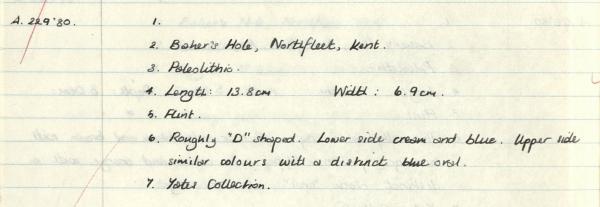 A. 229'80. 1.
2. Baker's Hole, Northfleet, Kent.
3. Paleolithic.
4. Length: 13.8cm Width: 6.9cm.
5. Flint.
6. Roughly "D" shaped. Lower side cream and blue. Upper side
similar colours with a distinct blue oval.
7. Yates Collection.